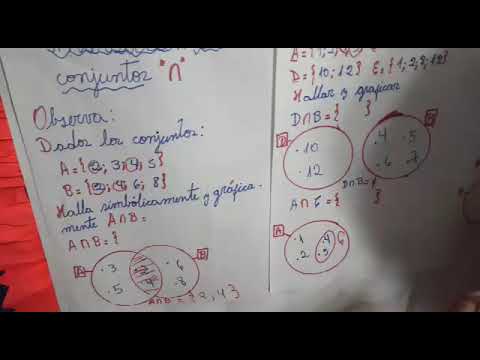 conjuntos "∩"
Observa:
Dados los conjuntos:
A={2; 3; 4; 5}
B={2; 4; 6; 8}
Halla simbólicamente y gráfica-
mente A∩B=
A∩B={
A
B
.3
.5
.2
4
.6
.8
A∩B={2,4}
D={10; 12}
Hallar y graficar
D∩B={ }
D
.10
.12
B
.4
.5
.6
.7
D∩B=
A∩C={ }
A
.1
.2
.4
.3